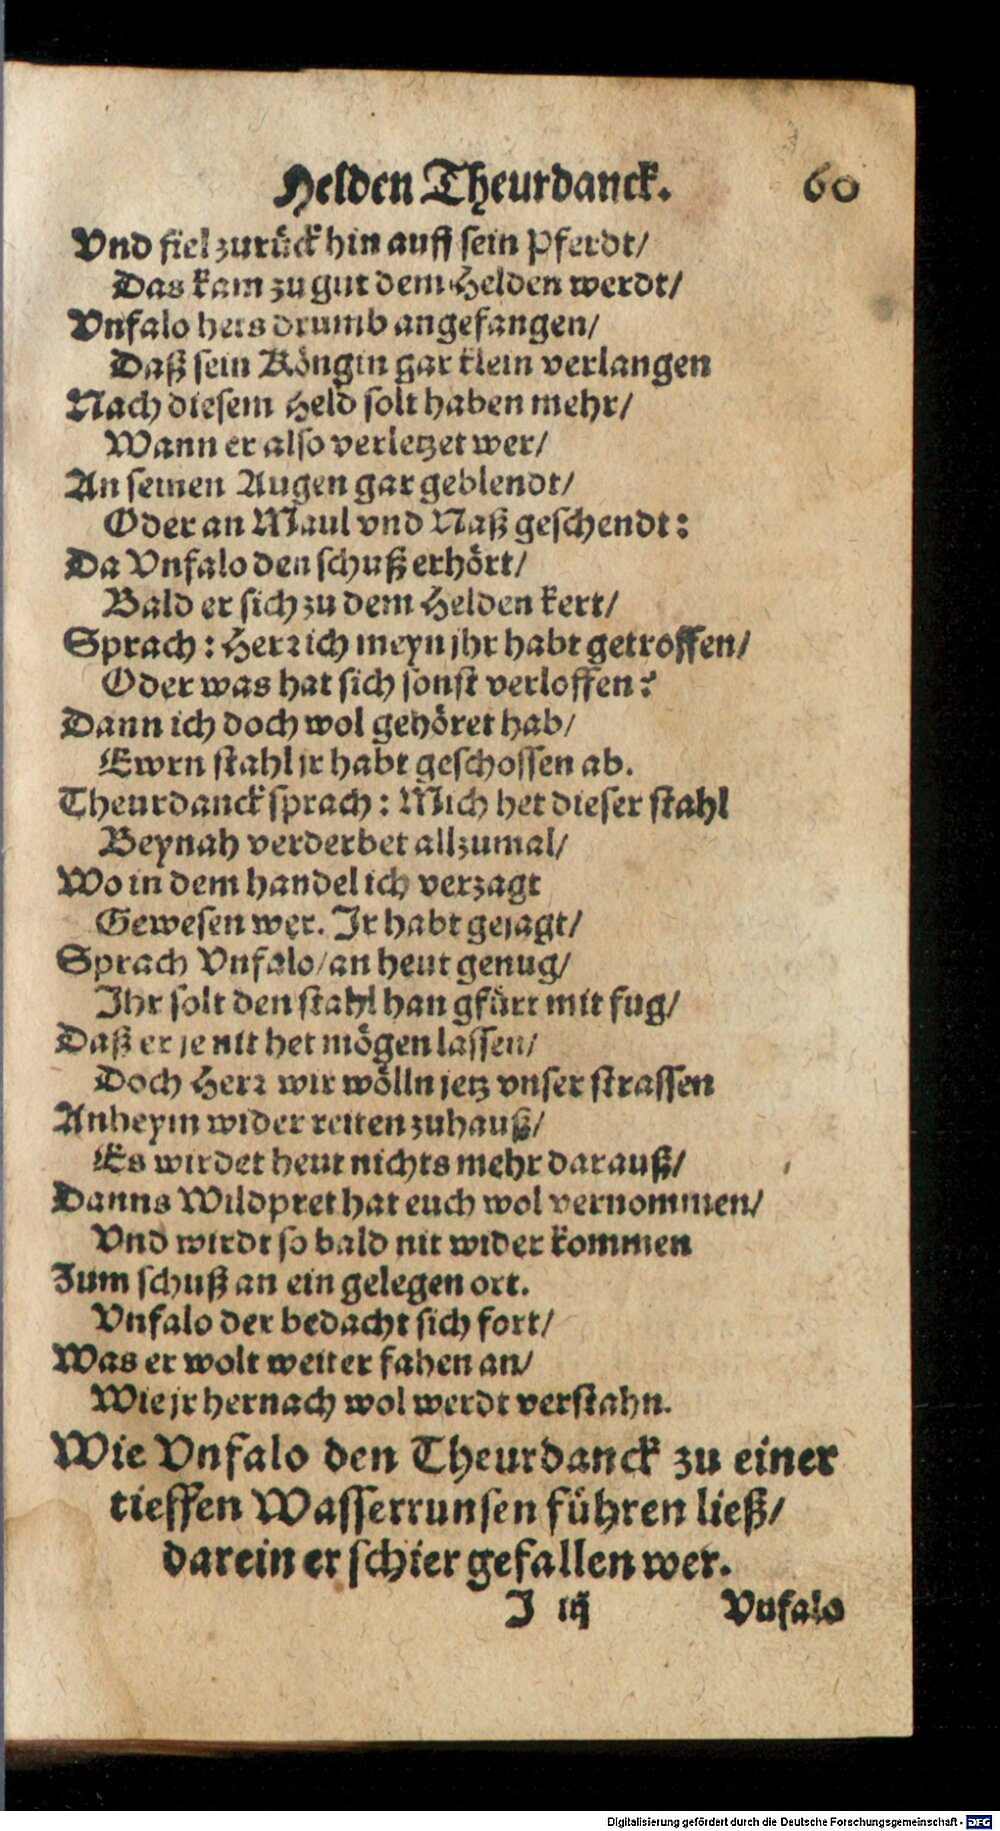 Helden Theurdanck. 60
Vnd fiel zurück hin auff sein Pferdt/
Das kam zu gut dem Helden werdt/
Vnfalo hets drumb angefangen/
Daß sein Köngin gar klein verlangen
Nach diesem Held solt haben mehr/
Wann er also verletzet wer/
An seinen Augen gar geblendt/
Oder an Maul vnd Naß geschendt:
Da Vnfalo den schuß erhört/
Bald er sich zu dem Helden kert/
Sprach: Herr ich meyn jhr habt getroffen/
Oder was hat sich sonst verloffen?
Dann ich doch wol gehöret hab/
Ewrn stahl jr habt geschossen ab.
Theurdanck sprach: Mich het dieser stahl
Beynah verderbet allzumal/
Wo in dem handel ich verzagt
Gewesen wer. Ir habt gejagt/
Sprach Vnfalo/ an heut genug/
Ihr solt den stahl han gfürt mit fug/
Daß er je nit het mögen lassen/
Doch Herr wir wölln jetz vnser strassen
Anheym wider reiten zuhauß/
Es wirdet heut nichts mehr darauß/
Danns Wildpret hat euch wol vernommen/
Vnd wirdt so bald nit wider kommen
Zum schuß an ein gelegen ort.
Vnfalo der bedacht sich fort/
Was er wolt weiter fahen an/
Wie jr hernach wol werdt verstahn.
Wie Vnfalo den Theurdanck zu einer
tieffen Wasserrunsen führen ließ/
darein er schier gefallen wer.
I iij Vnfalo
Digitalisierung gefördert durch die Deutsche Forschungsgemeinschaft - DFG